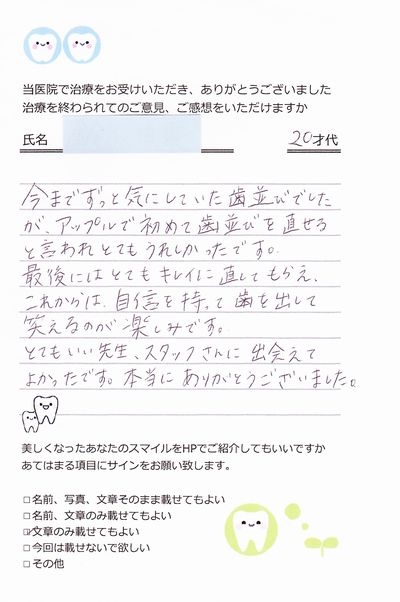 当医院で治療をお受けいただき、ありがとうございました
治療を終わられてのご意見、ご感想をいただけますか
氏名 20才代
今までずっと気にしていた歯並びでした
が、アップルで初めて歯並びを直せる
と言われとてもうれしかったです。
最後にはとてもキレイに直してもらえ、
これからは、自信を持って歯を出して
笑えるのが楽しみです。
とてもいい先生、スタッフさんに出会えて
よかったです。本当にありがとうございました。
美しくなったあなたのスマイルをHPでご紹介してもいいですか
あてはまる項目にサインをお願い致します。
□名前、写真、文章そのまま載せてもよい
□名前、文章のみ載せてもよい
☑文章のみ載せてもよい
□今回は載せないで欲しい
□その他